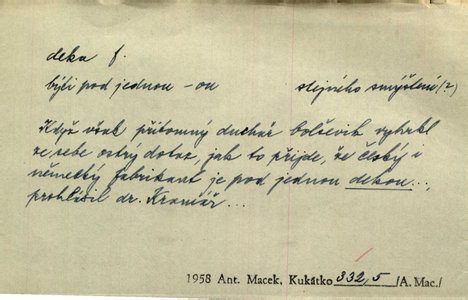 deka f.
býti pod jednou -ou stejného smýšlení(?)
Když však přítomný duchař bolševik vyhrkl
ze sebe ostrý dotaz, jak to přijde, že český i
německý fabrikant je pod jednou dekou...,
prohlásil dr. Kramář...
1958 Ant. Macek, Kukátko 332,5 /A. Mac./